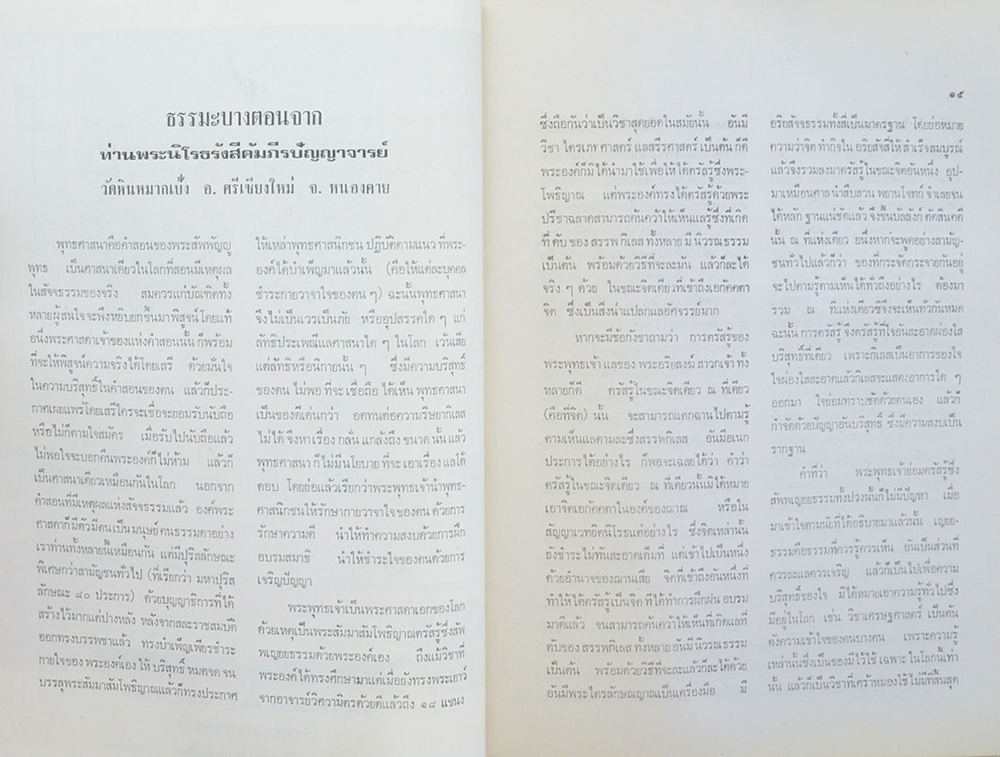 ธรรมะบางตอนจาก
ท่านพระนิโรธรังสีคัมภีรปัญญาจารย์
วัดหินหมากเป้ง อ. ศรีเชียงใหม่ จ. หนองคาย
พุทธศาสนาคือคำสอนของพระสัพพัญญู
พุทธ เป็นศาสนาเดียวในโลกที่สอนมีเหตุผล
ในสัจธรรมของจริง สมควรแก่บัณฑิตทั้ง
หลายผู้สนใจจะพึงหยิบยกขึ้นมาพิสูจน์ โดยแท้
อนึ่งพระศาสดาเจ้าของแห่งคำสอนนั้น ก็พร้อม
ที่จะให้พิสูจน์ความจริงได้โดยเสรี ด้วยมั่นใจ
ในความบริสุทธิ์ในคำสอนของตน แล้วก็ประ-
กาศเผยแพร่โดยเสรีใครจะเชื่อจะยอมรับนับถือ
หรือไม่ก็ตามใจสมัคร เมื่อรับไปนับถือแล้ว
ไม่พอใจจะบอกคืนพระองค์ก็ไม่ห้าม แล้วก็
เป็นศาสนาเดียวเหมือนกันในโลก นอกจาก
คำสอนที่มีเหตุผลแห่งสัจธรรมแล้ว องค์พระ
ศาสดาก็มีตัวมีตนเป็นมนุษย์คนธรรมดาอย่าง
เราท่านทั้งหลายนี้เหมือนกัน แต่มีปุริสลักษณะ
พิเศษกว่าสามัญชนทั่วไป (ที่เรียกว่า มหาปุริส
ลักษณะ ๘๐ ประการ) ด้วยบุญญาธิการที่ได้
สร้างไว้มากแต่ปางหลัง หลังจากสละราชสมบัติ
ออกทรงบรรพชาแล้ว ทรงบำเพ็ญเพียรชำระ
กายใจของ พระองค์เอง ให้ บริสุทธิ์ หมดจด จน
บรรลุพระสัมมาสัมโพธิญาณแล้วก็ทรงประกาศ
ให้เหล่าพุทธศาสนิกชน ปฏิบัติตามแนวที่พระ-
องค์ได้บำเพ็ญมาแล้วนั้น (คือให้แต่ละบุคคล
ชำระกายวาจาใจของตน ๆ) ฉะนั้นพุทธศาสนา
จึงไม่เป็นเวรเป็นภัย หรืออุปสรรคใด ๆ แก่
ลัทธิประเพณีแลศาสนาใด ๆ ในโลก เว้นเสีย
แต่ลัทธิหรือนิกายนั้น ๆ ซึ่งมีความบริสุทธิ์
ของตน ไม่พอ ที่จะ เชื่อถือ ได้เห็น พุทธศาสนา
เป็นของดีเด่นกว่า อดทนต่อความริษยากิเลส
ไม่ได้ จึงหาเรื่อง กลั่น แกล้งถึง ขนาด นั้น แล้ว
พุทธศาสนา ก็ไม่มีนโยบาย ที่จะ เอาเรื่อง แลโต้
ตอบ โดยย่อแล้วเรียกว่าพระพุทธเจ้านำพุทธ-
ศาสนิกชนให้รักษากายวาจาใจของตน ด้วยการ
รักษาความดี นำให้ทำความสงบด้วยการฝึก
อบรมสมาธิ นำให้ชำระใจของตนด้วยการ
เจริญปัญญา
พระพุทธเจ้าเป็นพระศาสดาเอกของโลก
ด้วยเหตุเป็นพระสัมมาสัมโพธิญาณตรัสรู้ซึ่งสัพ
พเญยยธรรมด้วยพระองค์เอง ถึงแม้วิชาที่
พระองค์ได้ทรงศึกษามาแต่เมื่อยังทรงพระเยาว์
จากอาจารย์วิศวามิตรด้วยดีแล้วถึง ๑๘ แขนง
๑๕
ซึ่งถือกันว่าเป็นวิชาสุดยอดในสมัยนั้น อันมี
วิชา ไตรเภท ศาสตร์ แลสรีรศาสตร์ เป็นต้น ก็ดี
พระองค์ก็มิได้นำมาใช้เพื่อให้ได้ตรัสรู้ซึ่งพระ-
โพธิญาณ แต่พระองค์ทรงได้ตรัสรู้ด้วยพระ
ปรีชาฉลาดสามารถค้นคว้าให้เห็นแลรู้ซึ่งที่เกิด
ที่ ดับ ของ สรรพ กิเลส ทั้งหลาย มี นิวรณธรรม
เป็นต้น พร้อมด้วยวิธีที่จะละมัน แล้วก็ละได้
จริง ๆ ด้วย ในขณะจิตเดียวที่เข้าถึงเอกัคคตา
จิต ซึ่งเป็นสิ่งน่าแปลกแลอัศจรรย์มาก
หากจะมีข้อกังขาถามว่า การตรัสรู้ของ
พระพุทธเจ้า แลของ พระอริยสงฆ์ สาวกเจ้า ทั้ง
หลายก็ดี ตรัสรู้ในขณะจิตเดียว ณ ที่เดียว
(คือที่จิต) นั้น จะสามารถแตกฉานไปตามรู้
ตามเห็นแลตามละซึ่งสรรพกิเลส อันมีเอนก
ประการได้อย่างไร ก็พอจะเฉลยได้ว่า คำว่า
ตรัสรู้ในขณะจิตเดียว ณ ที่เดียวนั้นมิได้หมาย
เอาจิตเอกัคคตาในองค์ของฌาณ หรือใน
สัญญาเวทยิตนิโรธแต่อย่างไร ซึ่งจิตเหล่านั้น
ยังชำระไม่ทันสะอาดเต็มที่ แต่เข้าไปเป็นหนึ่ง
ด้วยอำนาจของฌานเสีย จิตที่เข้าถึงอันหนึ่งที่
ทำให้ได้ตรัสรู้เป็นจิต ที่ได้ทำการฝึกฝน อบรม
มาดีแล้ว จนสามารถค้นคว้าให้เห็นที่เกิดแลที่
ดับของ สรรพกิเลส ทั้งหลาย อันมี นิวรณธรรม
เป็นต้น พร้อมด้วยวิธีที่จะละแล้วก็ละได้ด้วย
อันมีพระไตรลักษณญาณเป็นเครื่องมือ มี
อริยสัจจธรรมทั้งสี่เป็นมาตรฐาน โดยย่อหมาย
ความว่าจิต ทำกิจใน อริยสัจสี่ให้ สำเร็จสมบูรณ์
แล้วจึงรวมลงมาตรัสรู้ในขณะจิตอันหนึ่ง อุป-
มาเหมือนศาล นำสืบสวน พยานโจทก์ จำเลยจน
ได้หลัก ฐานแน่ชัดแล้ว จึงขึ้นบัลลังก์ ตัดสินคดี
นั้น ณ ที่แห่งเดียว อนึ่งหากจะพูดอย่างสามัญ-
ชนทั่วไปแล้วก็ว่า ของที่กระจัดกระจายกันอยู่
จะไปตามรู้ตามเห็นได้ทั่วถึงอย่างไร ต้องมา
รวม ณ ที่แห่งเดียวซึ่งจะเห็นทั่วกันหมด
ฉะนั้น การตรัสรู้ จึงตรัสรู้ที่ใจอันสะอาดผ่องใส
บริสุทธิ์ที่เดียว เพราะกิเลสเป็นอาการของใจ
ใจผ่องใสสะอาดแล้วกิเลสจะแสดงอาการใด ๆ
ออกมา ใจย่อมทราบชัดด้วยตนเอง แล้วก็
กำจัดด้วยปัญญาอันบริสุทธิ์ ซึ่งมีความสงบเป็น
รากฐาน
คำที่ว่า พระพุทธเจ้าย่อมตรัสรู้ซึ่ง
สัพพเญยยธรรมทั้งปวงนั้นก็ไม่มีปัญหา เมื่อ
มาเข้าใจตามนัยที่ได้อธิบายมาแล้วนั้น เญยย-
ธรรมคือธรรมที่ควรรู้ควรเห็น อันเป็นส่วนที่
ควรละแลควรเจริญ แล้วก็เป็นไปเพื่อความ
บริสุทธิ์ของใจ มิได้หมายเอาความรู้ทั่วไปซึ่ง
มีอยู่ในโลก เช่น วิชาเศรษฐศาสตร์ เป็นต้น
ดังความเข้าใจของคนบางคน เพราะความรู้
เหล่านั้นซึ่งเป็นของมีไว้ใช้ เฉพาะ ในโลกนี้เท่า
นั้น แล้วก็เป็นวิชาที่เศร้าหมองใช้ไม่มีที่สิ้นสุด